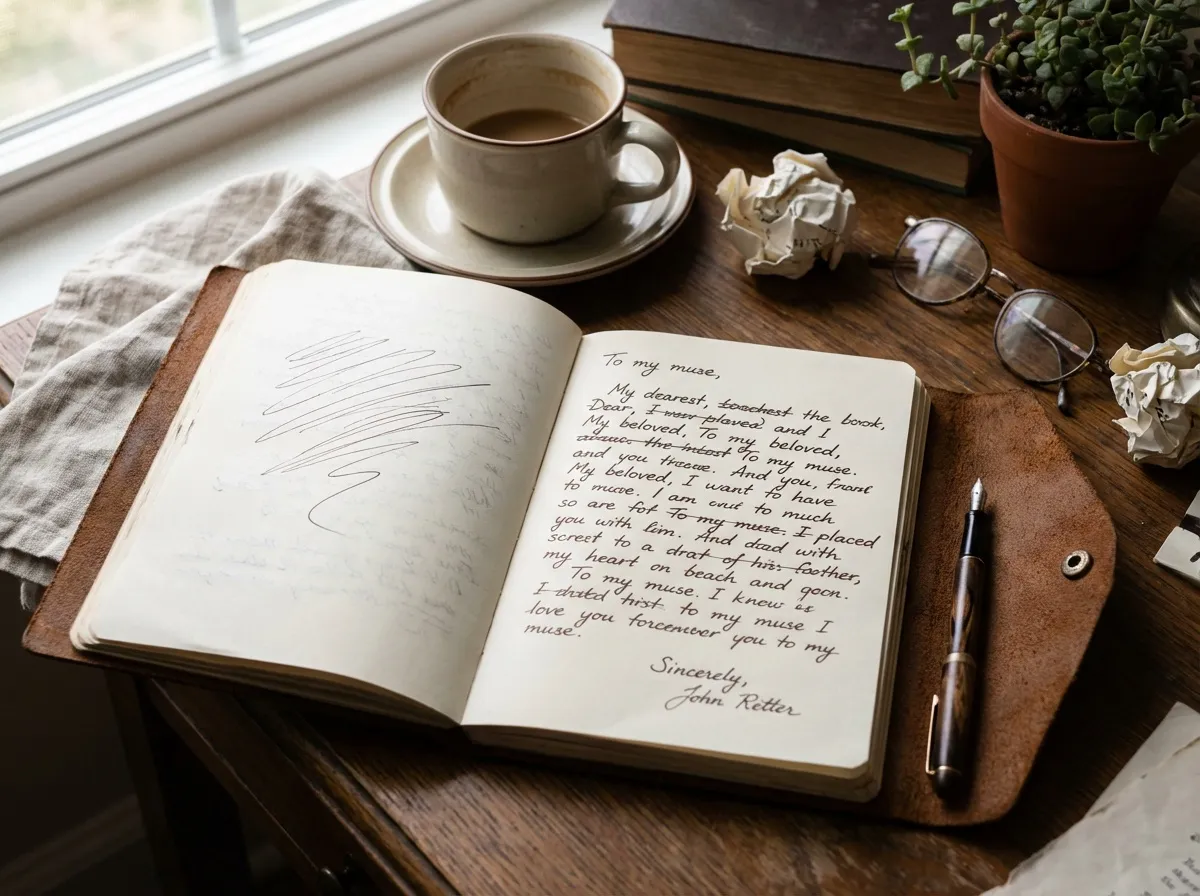 To my muse,
My dearest, the book,
Dear, I and I
My beloved, To my beloved,
To my muse.
and you And you,
My beloved, I want to have
to muse. I am to much
so are fot To my muse. I placed
you with lim. And dad with
screet to a drat of his foother,
my heart on beach and goon.
To my muse. I knew as
I hist to my muse I
love you forcemver you to my
muse.
Sincerely,
John Retter